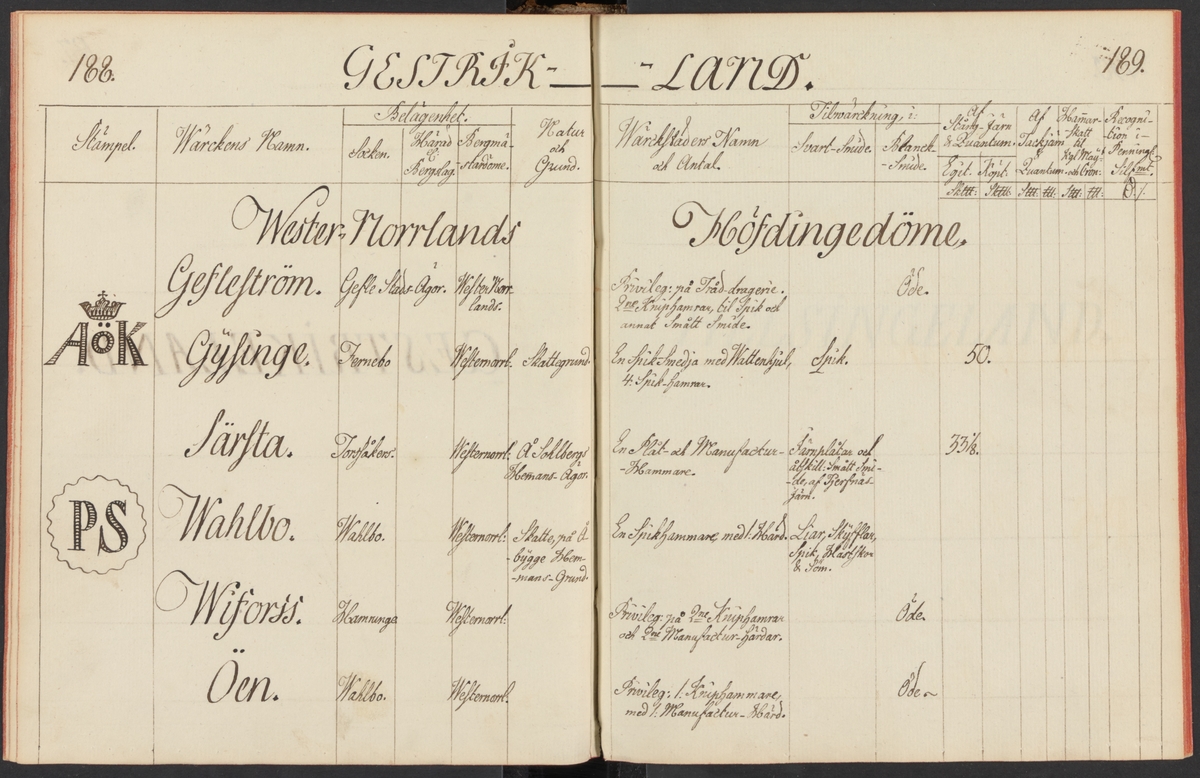 188.
GESTRIK-
-LAND.
189.
Stämpel.
Wärckens Namn.
Belägenhet.
Socken.
Härad
&
Bergslag.
Bergmä-
stardöme.
Natur
och
Grund.
Wärckstäders Namn
och Antal.
Tilwärckning, i:
Svart-Smide.
Blanck-
Smide.
Af
Stång-Järn
Quantum.
Egit.
Köpt.
Af
Tackjärn
Quantum.
Hamar-
Skatt
til
Kgl Maij:
och Cron:
Recogni-
tion i
Penning
Silfmt.
Wester-Norrlands
Höfdingedöme.
Gefleström.
Gefle Stads Ägor.
Wester Norr-
lands.
Privileg: på Tråd-dragerie.
2ne Kniphamrar, til Spik och
annat Smått Smide.
Öde.
AÖK
Gysinge.
Fernebo
Westernorrl:
Skattegrund.
En Spik Smedja med Wattenhjul,
4: Spik-hamrar.
Spik.
50.
Särsta.
Torssåkers.
Westernorrl:
Å Sohlbergs
Hemans-Ägor.
En Plåt- och Manufactur-
-Hammare.
Järnplåtar och
åtskill: Smått Smi-
-de, af Tjerfnäs-
järn.
33⅓.
PS
Wahlbo.
Wahlbo.
Westernorrl:
Skatte, på Å-
-bygge Hem-
-mans-Grund.
En Spikhammare, med 1: Härd.
Liar, Skyfflar,
Spik, Hästskor
& Söm.
Wiforss.
Hamrunge
Westernorrl:
Privileg: på 2ne Kniphamrar
och 2ne Manufactur-härdar.
Öde.
Öen.
Wahlbo.
Westernorrl.
Privileg: 1. Kniphammare,
med 1: Manufactur-Härd.
Öde